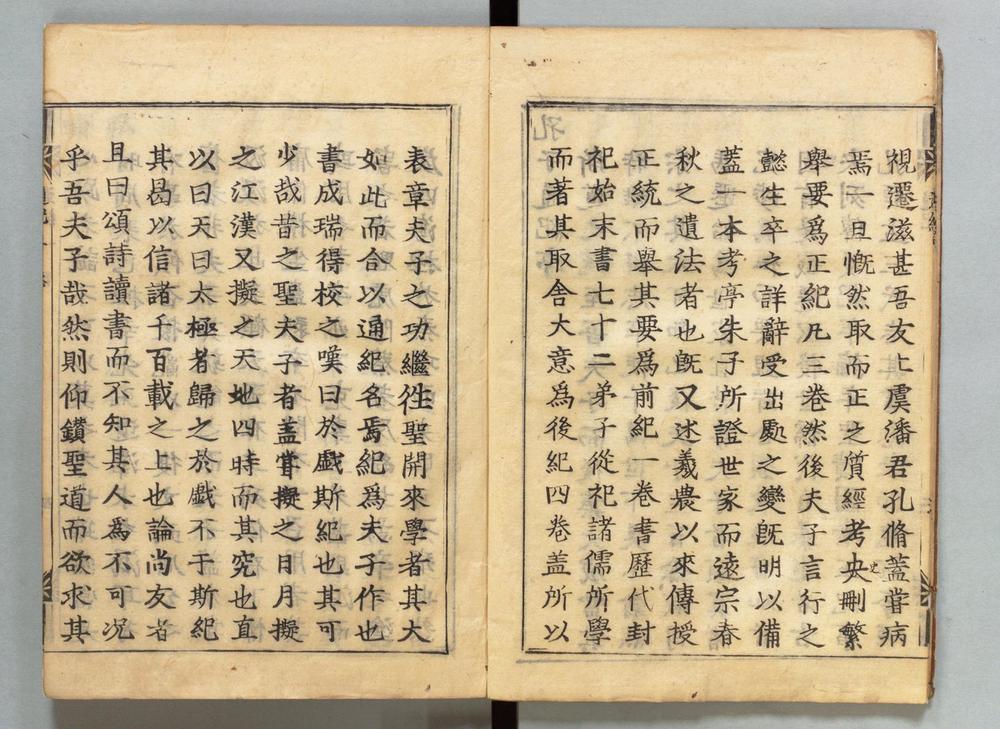 視遷滋甚吾友上虞潘君孔脩蓋嘗病
焉一旦慨然取而正之質經考史刪繁
舉要爲正紀凡三卷然後夫子言行之
懿生卒之詳辭受出處之變旣明以備
蓋一本考亭朱子所證世家而遠宗春
秋之遺法者也旣又述羲農以來傳授
正統而舉其要爲前紀一卷書歷代封
祀始末書七十二弟子從祀諸儒所學
而著其取舍大意爲後紀四卷盖所以
表章夫子之功繼徃聖開來學者其大
如此而合以通紀名焉紀爲夫子作也
書成瑞得校之嘆曰於戲斯紀也其可
少哉昔之聖夫子者盖甞擬之日月擬
之江漢又擬之天地四時而其究也直
以曰天曰太極者歸之於戲不于斯紀
其曷以信諸千百載之上也論尚友者
且曰頌詩讀書而不知其人為不可况
乎吾夫子哉然則仰鑚聖道而欲求其